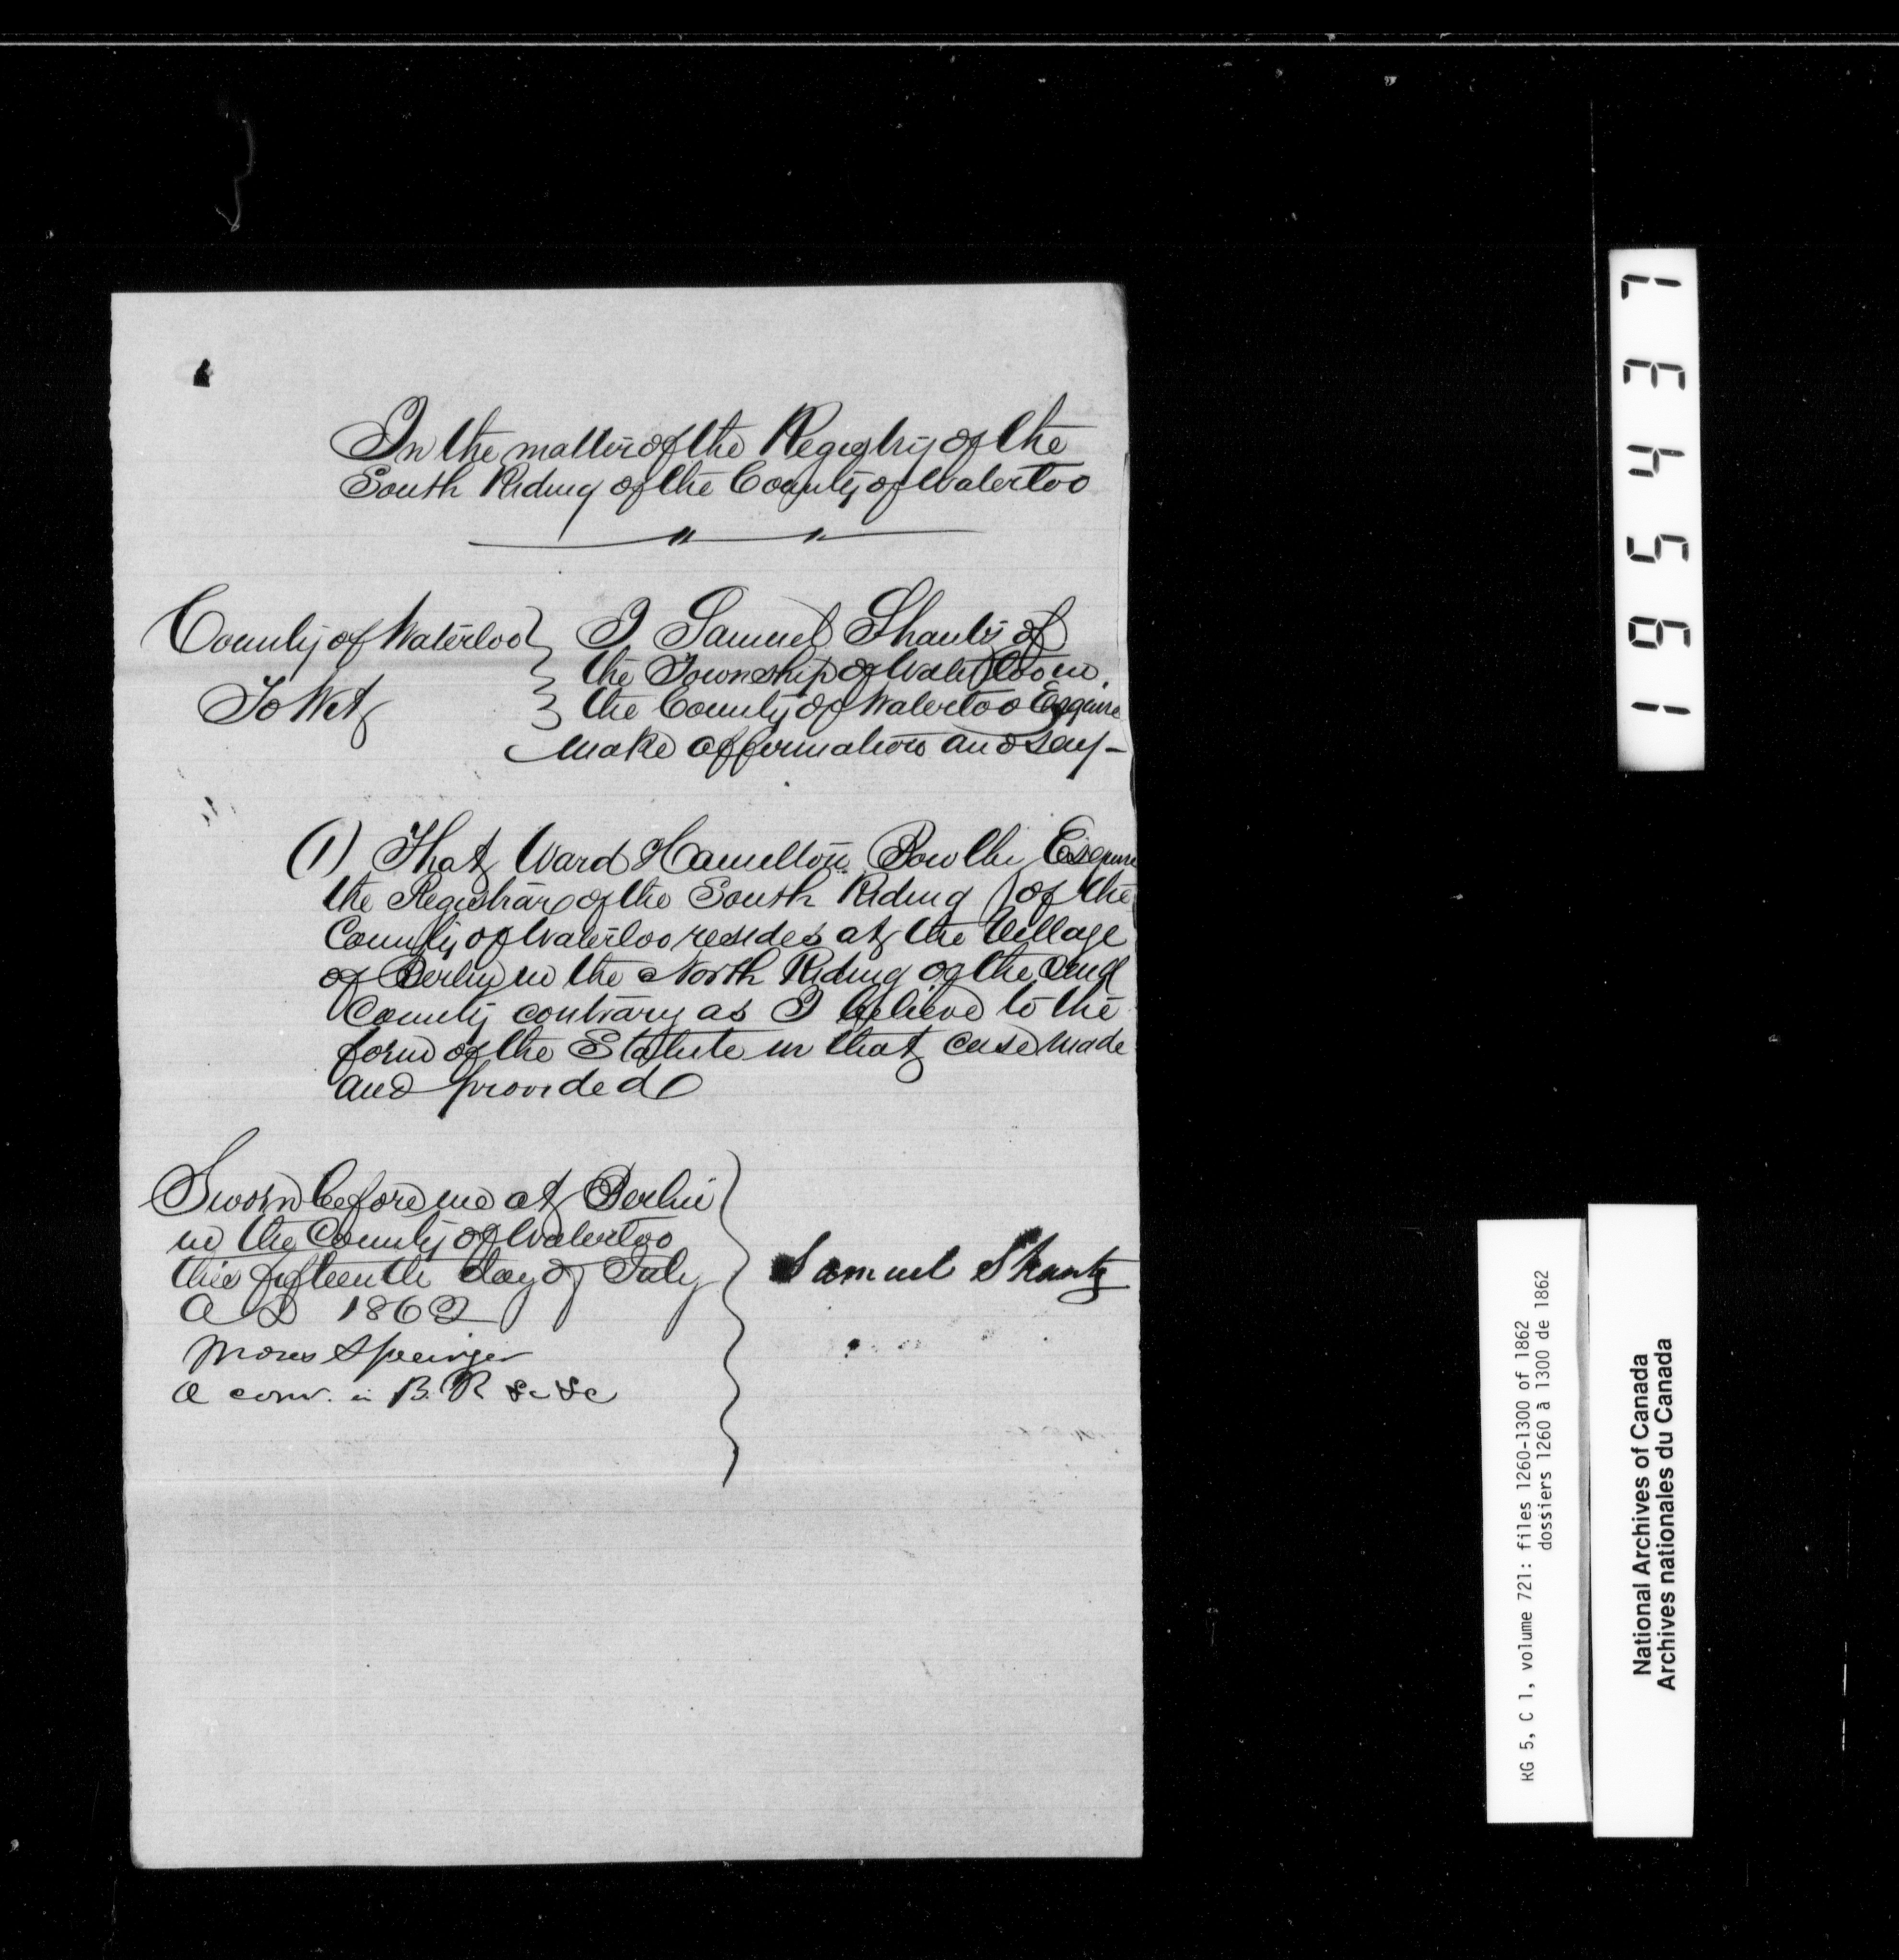 In the matter of the Registry of the
South Riding of the County of Waterloo
County of Waterloo
To Wit
I Samuel Shantz of
the Township of Waterloo in
the County of Waterloo Esquire
make affirmation and say —
(1) That Ward Hamilton Bowlby Esquire
the Registrar of the South Riding of the
County of Waterloo resides at the Village
of Berlin in the North Riding of the said
County contrary as I believe to the
form of the Statute in that case made
and provided
Sworn before me at Berlin
in the County of Waterloo
this fifteenth day of July
A D 1862
Moses Springer
A com. in B. R &c &c
Samuel Shantz
195437
RG 5, C 1, volume 721: files 1260-1300 of 1862
dossiers 1260 à 1300 de 1862
National Archives of Canada
Archives nationales du Canada